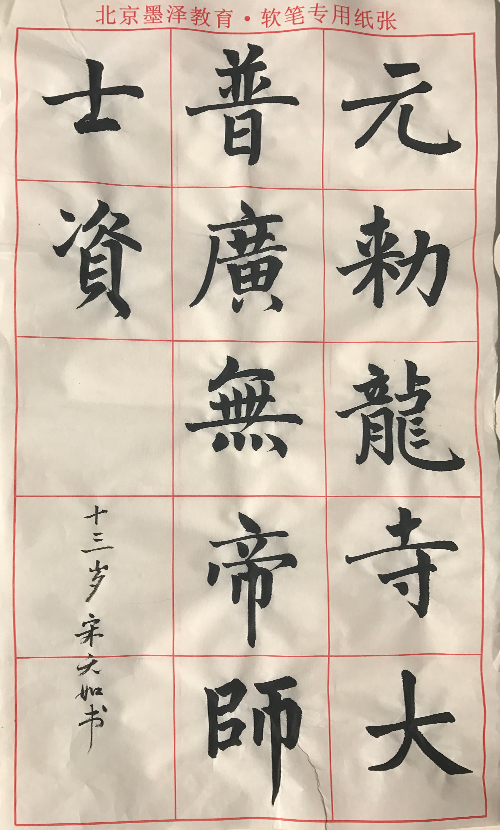 北京墨泽教育·软笔专用纸张
元勑龍寺大
普廣無帝師
士資
十三岁宋天如书